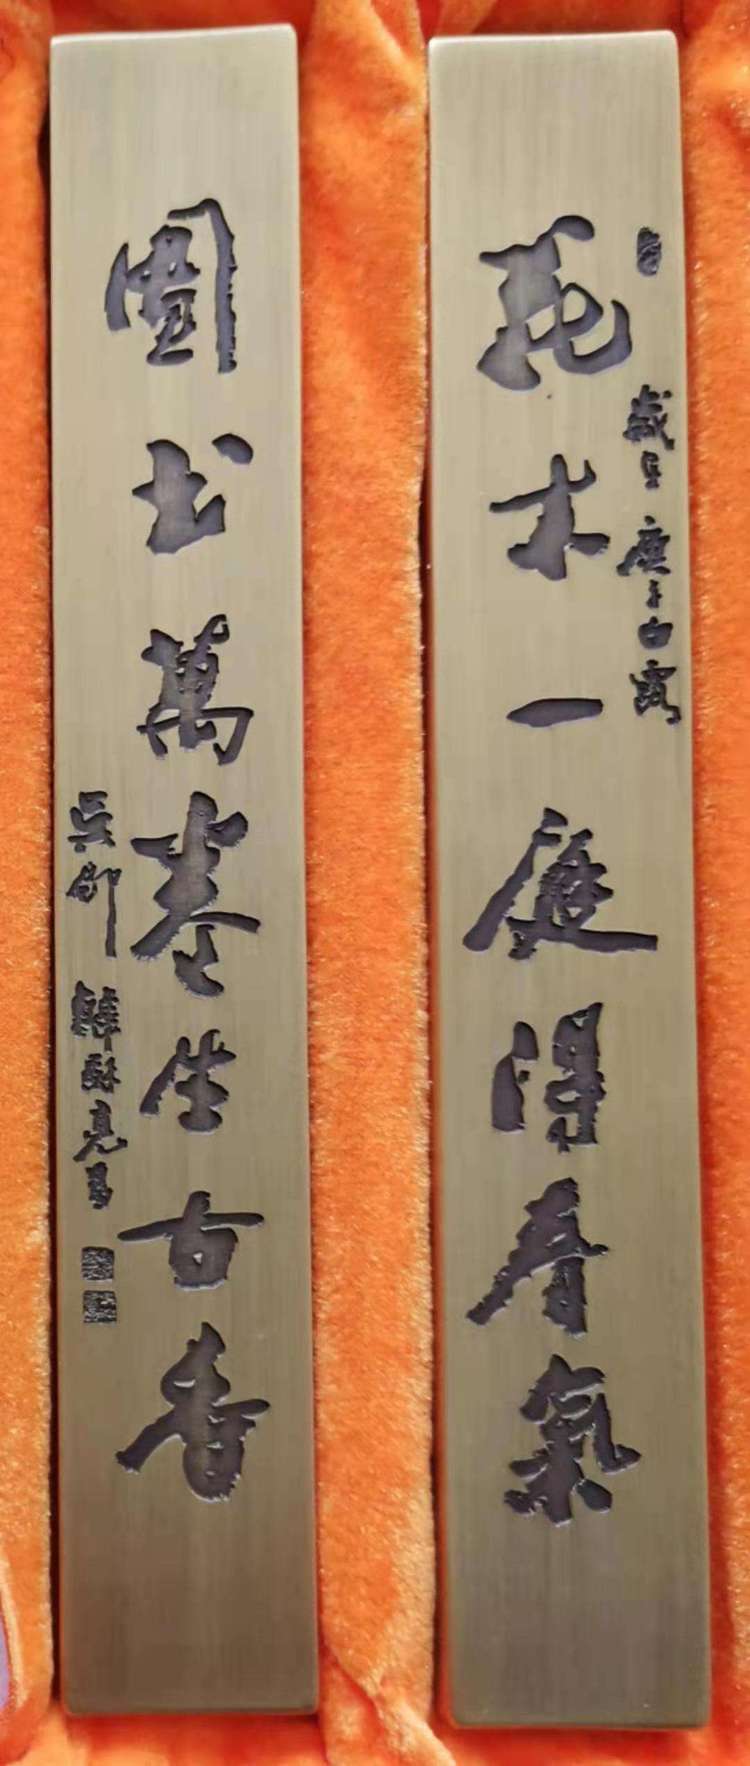 花木一庭得春氣
歲在庚子白露
圖書萬卷生古香
吳郡韓酥亮書